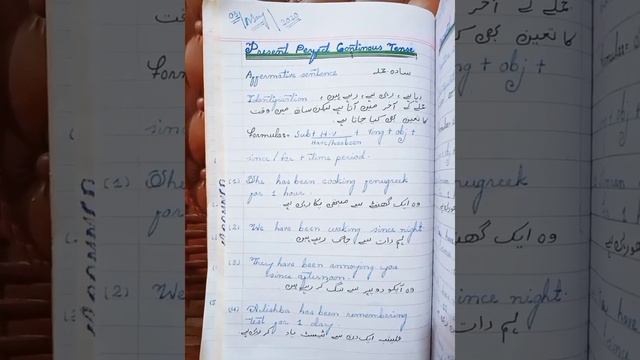 03/May/2020
Present Peryod Continous Tense
Affermative sentence سادہ جملہ
رہا ہے، رہی ہے، رہے ہیں،
جملے کے آخر میں آتا ہے لیکن ساتھ میں وقت
کا تعین بھی کیا جاتا ہے۔
Formula= Subt H.V + Ving + obj +
Have/hasbeen
since/for + Time period.
(1) She has been cooking fenugreek
for 1 hour.
وہ ایک گھنٹے سے میتھی پکا رہی ہے
(2) We have been waking since night
ہم رات سے جاگ رہے ہیں
(3) They have been annoying you
since afternoon.
وہ آپکو دوپہر سے تنگ کر رہے ہیں
(4) Alishba has been remembering
test for 1 day.
علیشبہ ایک دن سے ٹیسٹ یاد کر رہی ہے